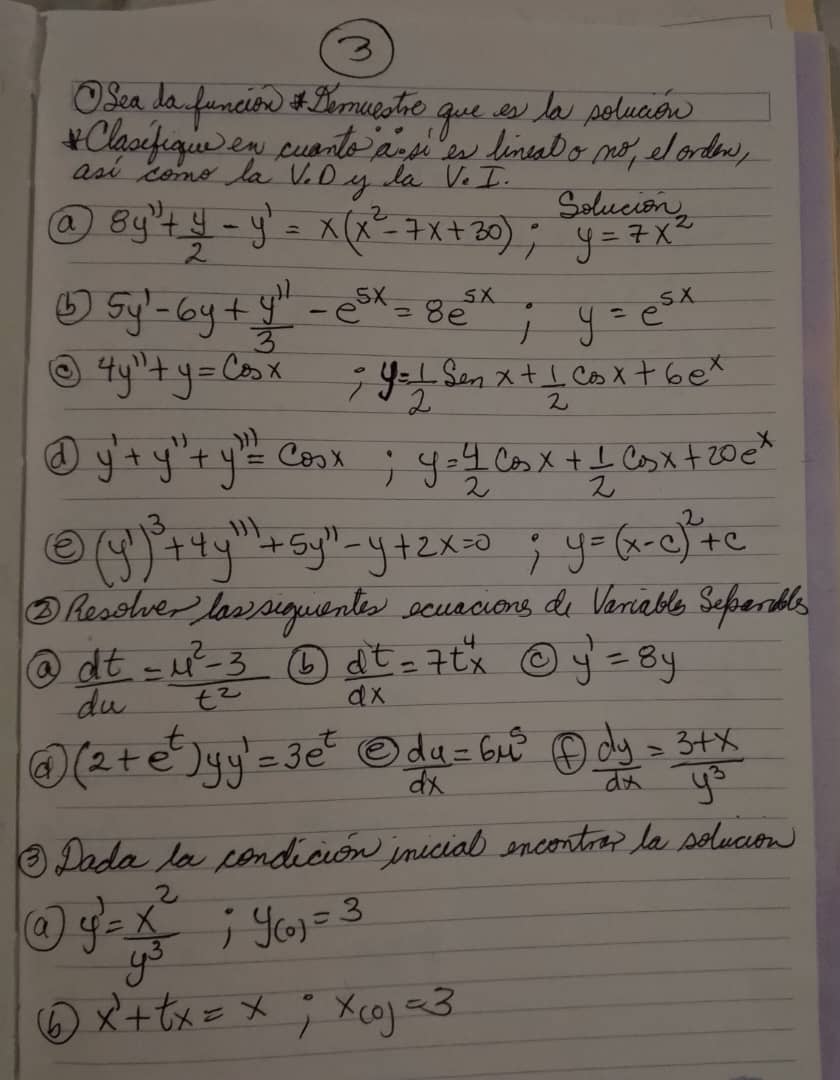 3
① Sea da función * Demuestre que es la solución
* Clasifique en cuanto a: si es lineal o no, el orden,
así como la V.D y la V.I.
Solución
ⓐ 8y'' + y/2 - y' = x(x² - 7x + 30) ; y = 7x²
ⓑ 5y' - 6y + y''/3 - e^5x = 8e^5x ; y = e^5x
ⓒ 4y'' + y = Cos x ; y = 1/2 Sen x + 1/2 Cos x + 6e^x
ⓓ y' + y'' + y''' = Cosx ; y = 4/2 Cos x + 1/2 Cosx + 20e^x
ⓔ (y')³ + 4y''' + 5y'' - y + 2x = 0 ; y = (x-c)² + c
② Resolver las siguientes ecuacions de Variables Separables
ⓐ dt/du = u² - 3/t² ⓑ dt/dx = 7t⁴x ⓒ y' = 8y
ⓓ (2 + e^t)yy' = 3e^t ⓔ du/dx = 6u⁵ ⓕ dy/dx = 3+x/y³
③ Dada la condición inicial encontrar la solucion
ⓐ y' = x²/y³ ; y(0) = 3
ⓑ x' + tx = x ; x(0) = 3